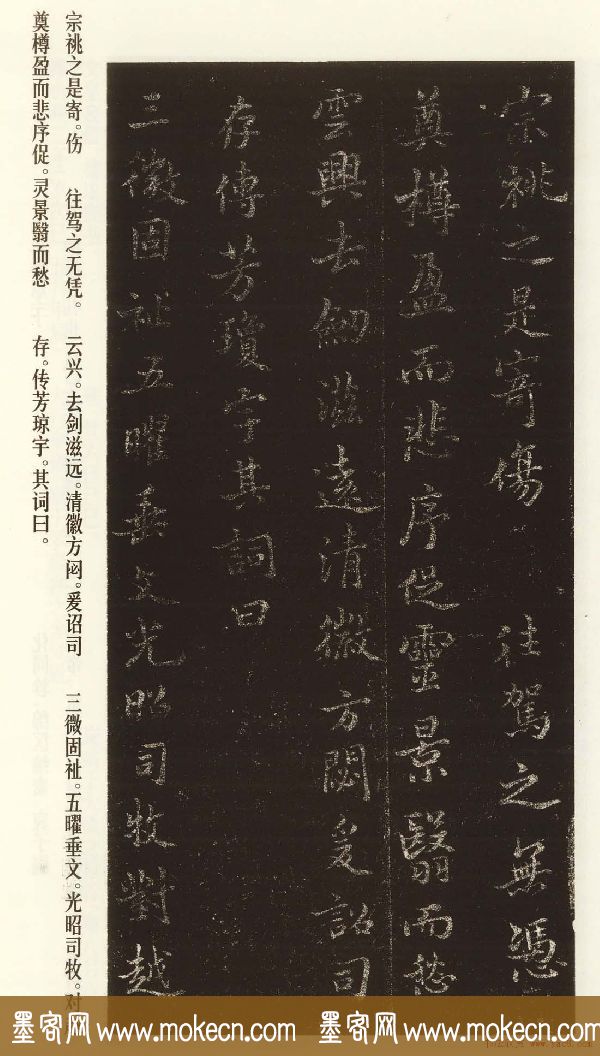 宗祧之是寄傷 往駕之無憑
奠樽盈而悲序促靈景翳而愁
雲興去劒滋遠清徽方閟爰詔司
存傳芳瓊宇其詞曰
三微固祉五曜垂文光昭司牧對越
宗祧之是寄。伤 往驾之无凭。 云兴。去剑滋远。清徽方闷。爰诏司 三微固祉。五曜垂文。光昭司牧。对
奠樽盈而悲序促。灵景翳而愁 存。传芳琼宇。其词曰。
墨客网 www.mokecn.com 墨客网 www.mokecn.com